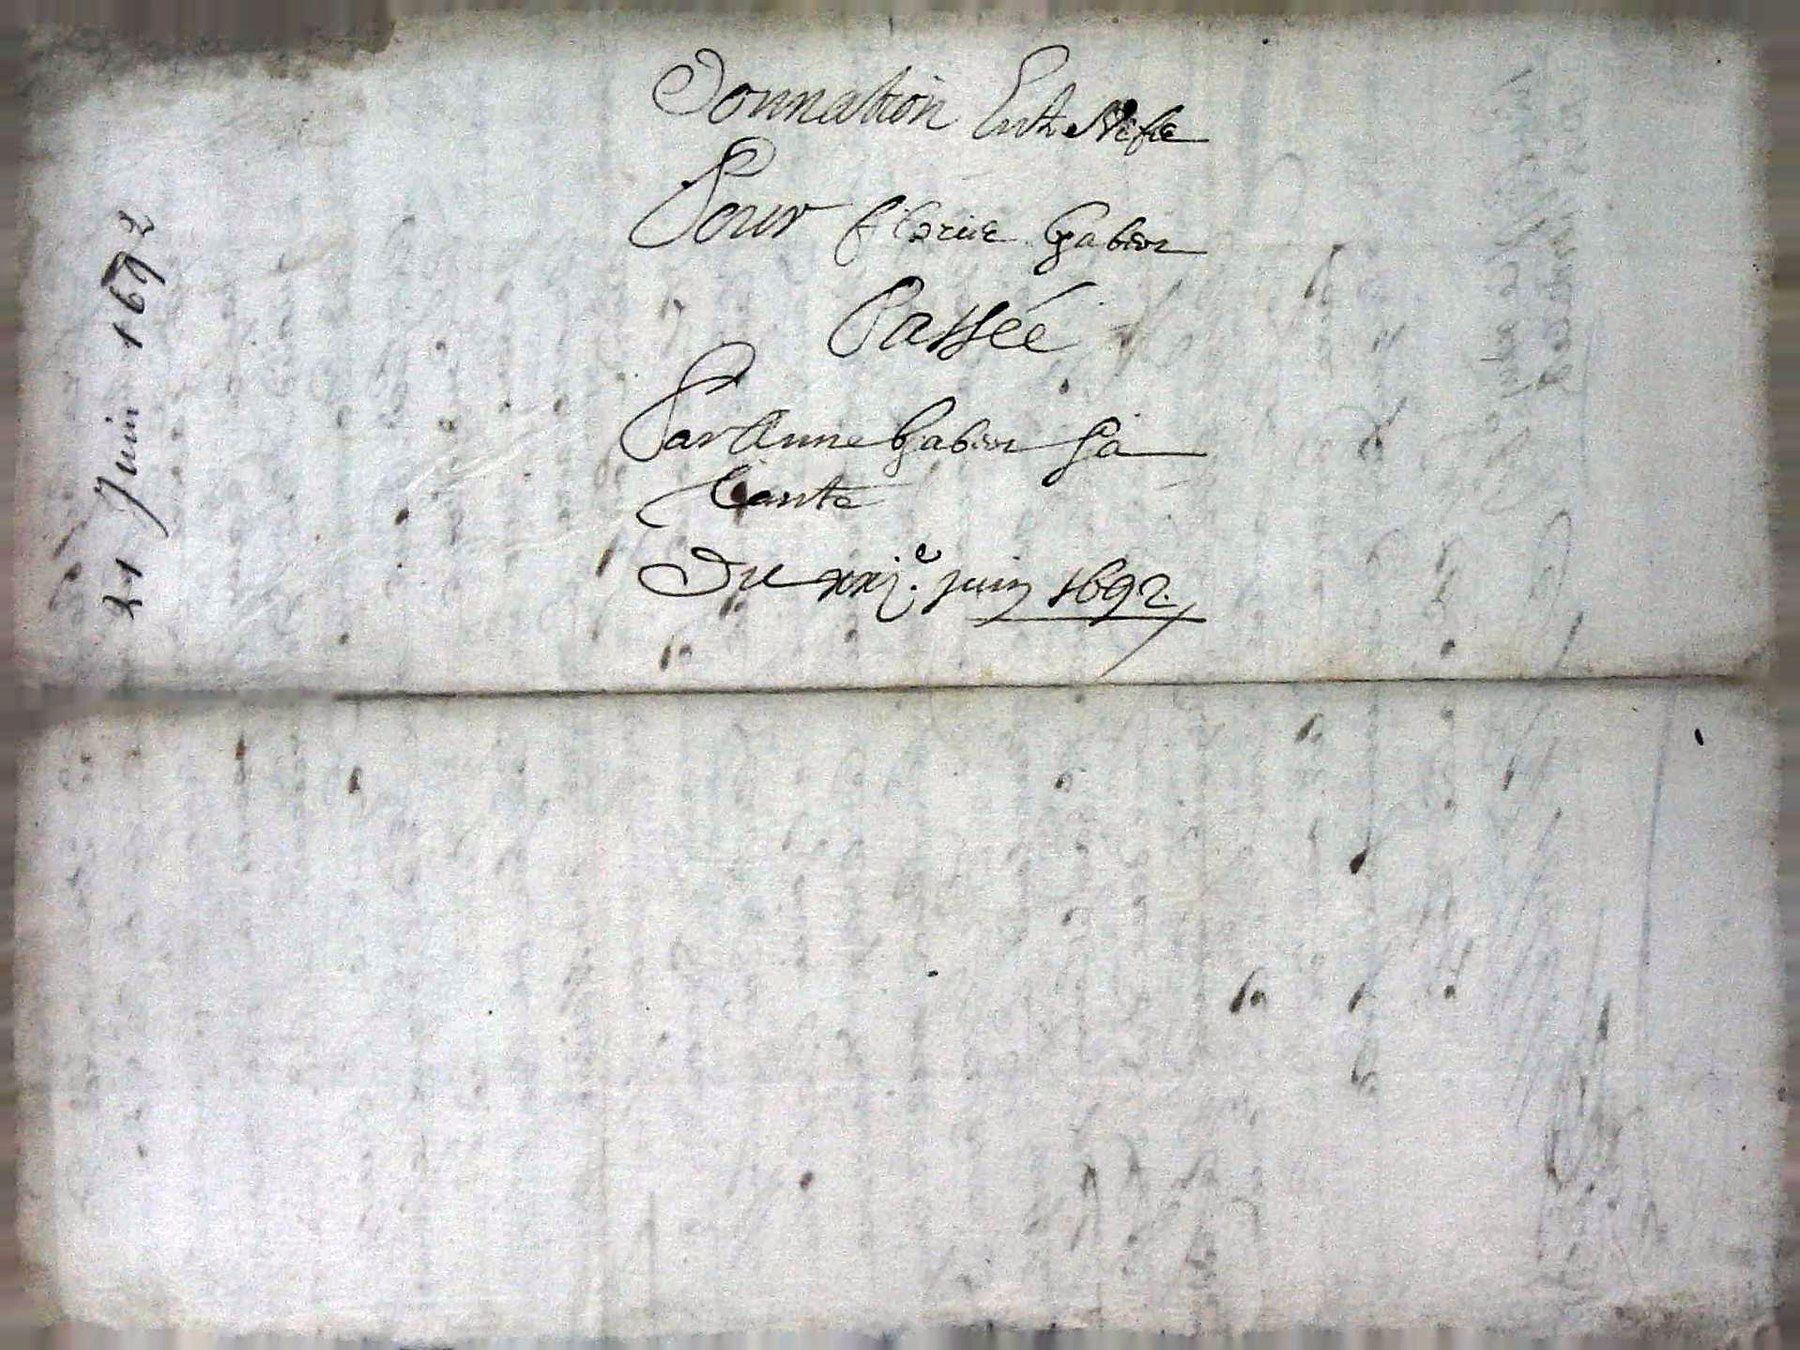 Donnation Entre Vifs
Pour Gabior
Passée
Par Anne Gabior Sa
Tante
Du xxj.e juin 1692.
21 Juin 1692